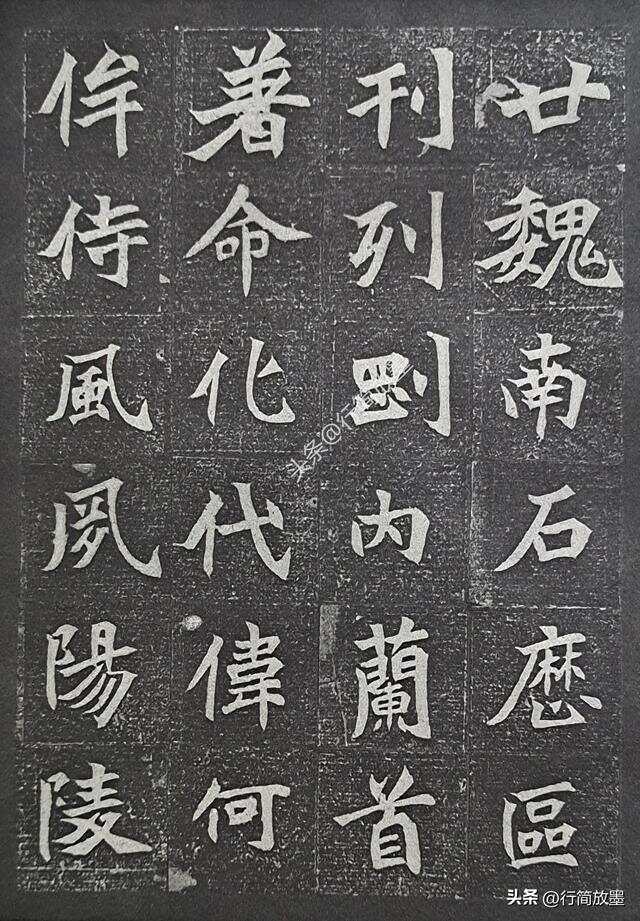 廿魏南石區
刊列内蘭首
著命化代偉何
侔侍風夙陽陵
头条@行简
头条@行简放墨